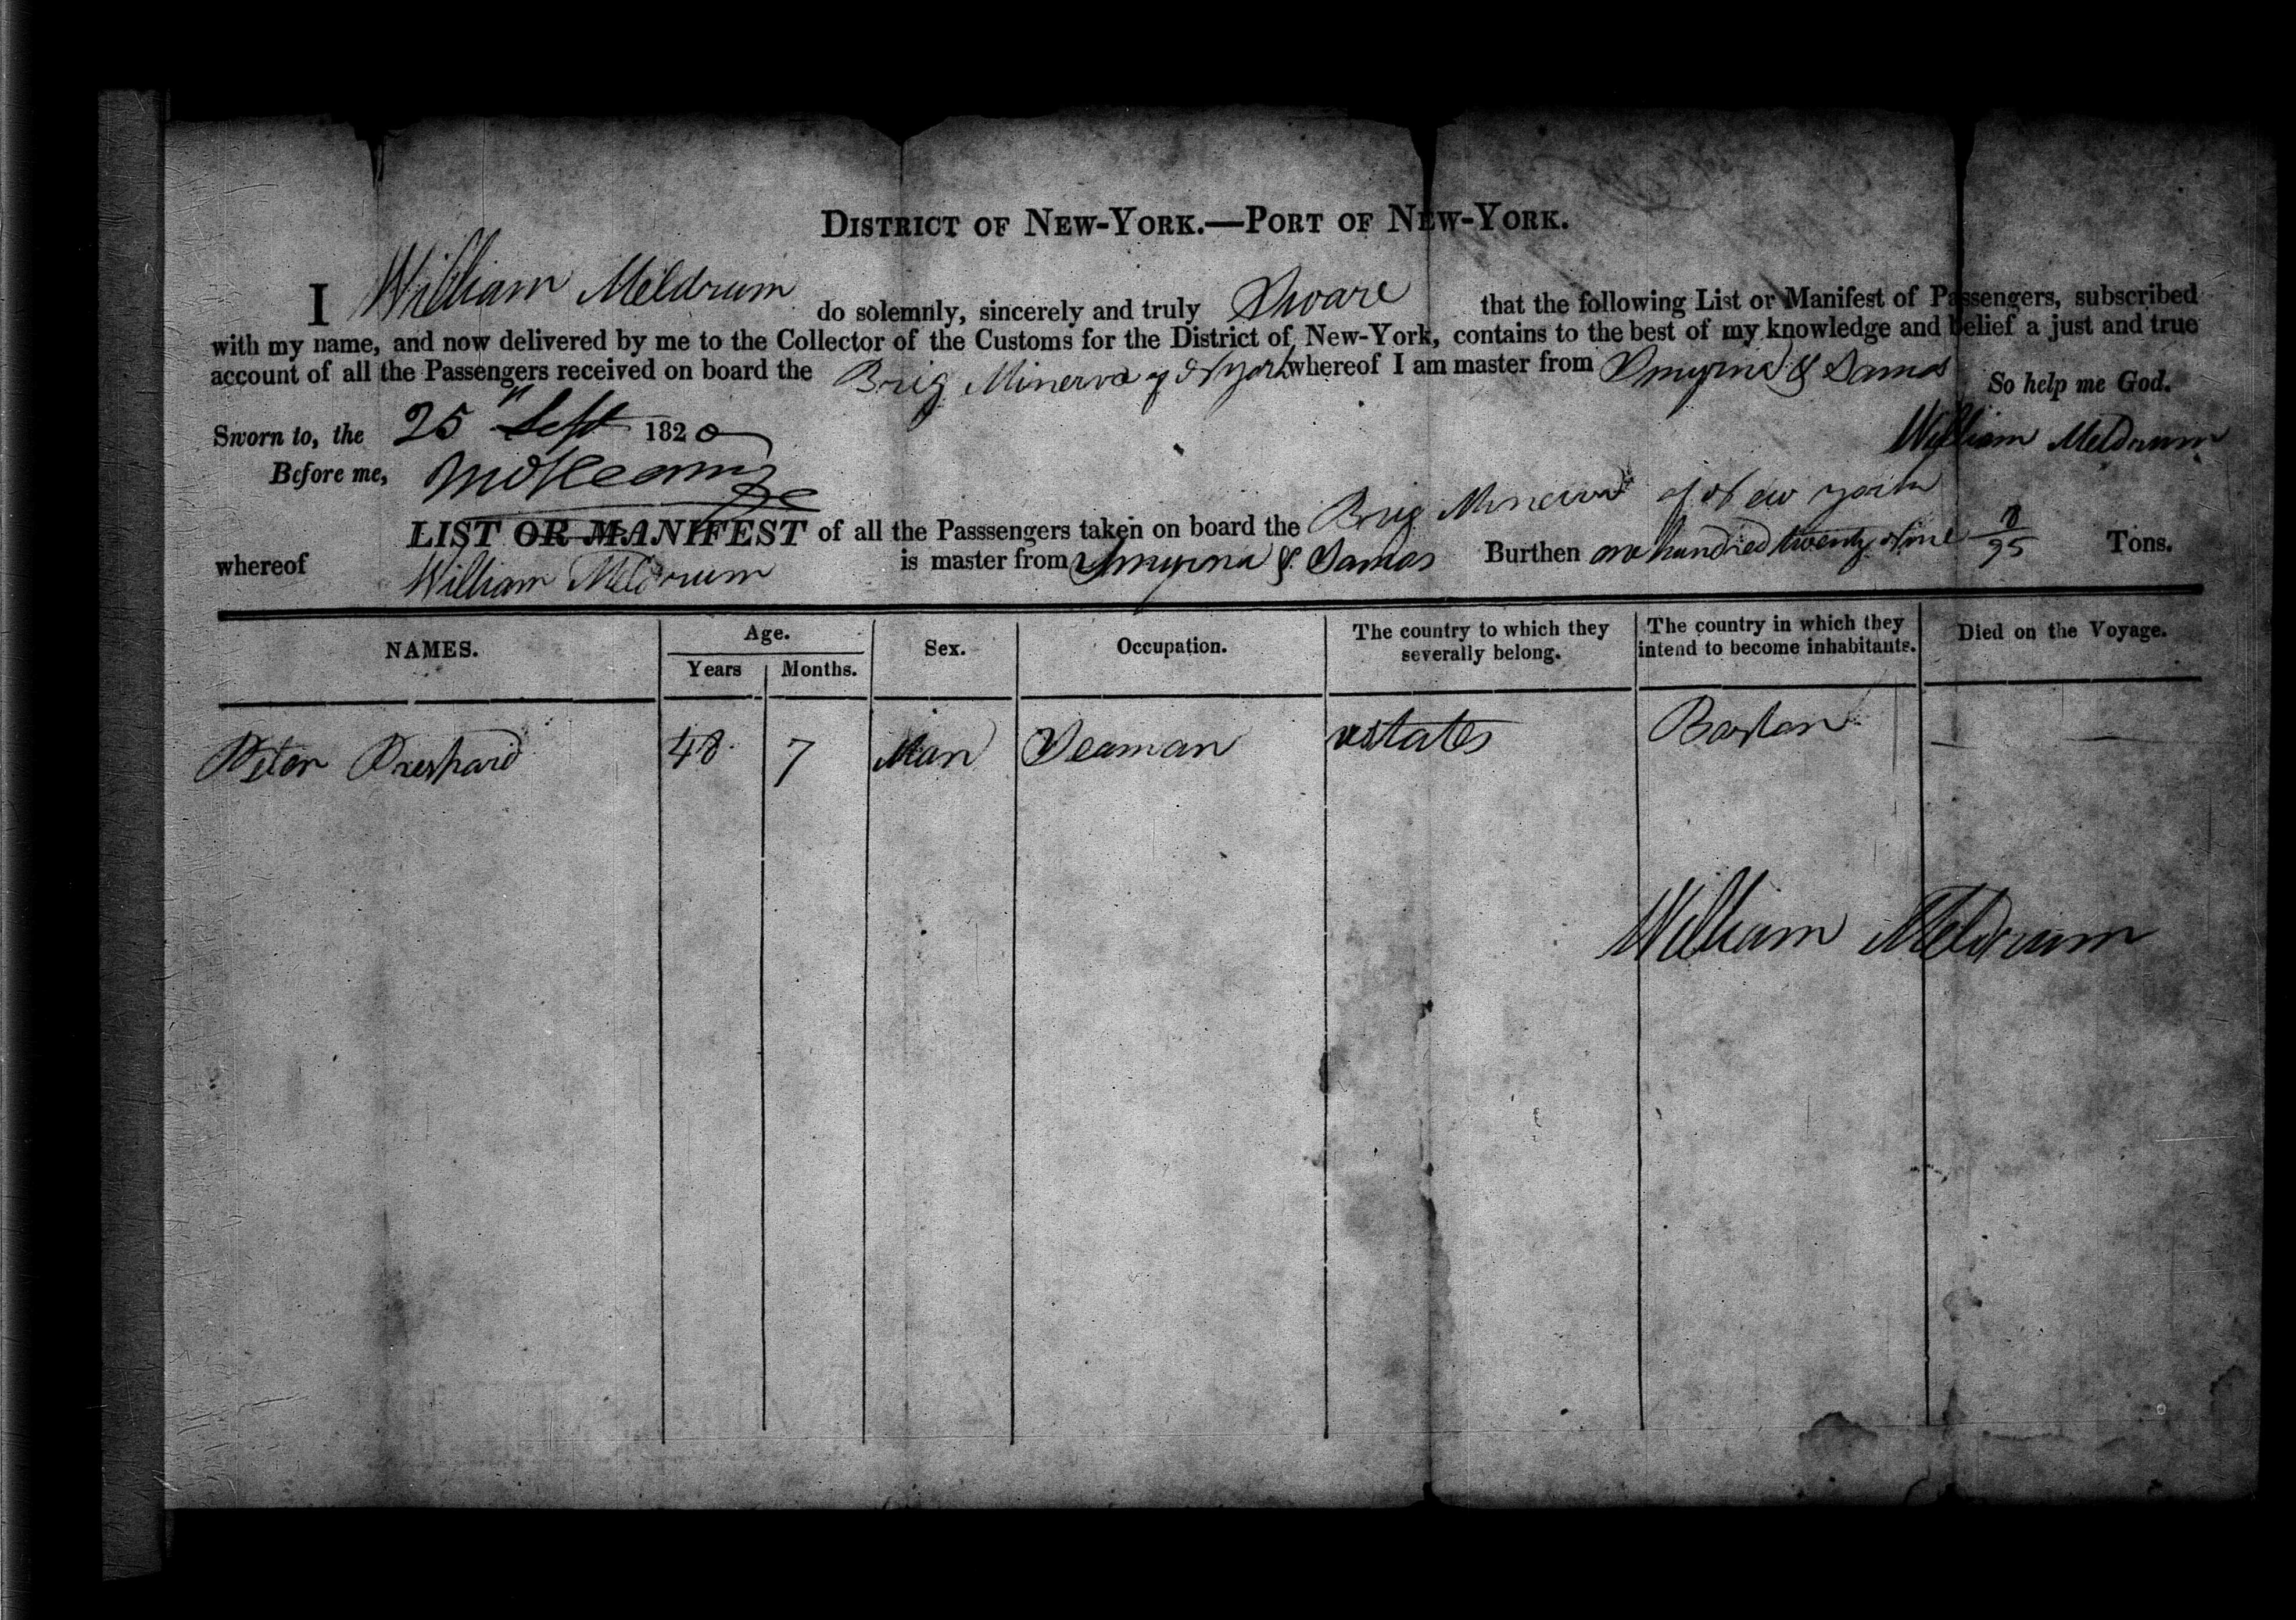 DISTRICT OF NEW-YORK.—PORT OF NEW-YORK.
I William Meldrum do solemnly, sincerely and truly Sware that the following List or Manifest of Passengers, subscribed
with my name, and now delivered by me to the Collector of the Customs for the District of New-York, contains to the best of my knowledge and belief a just and true
account of all the Passengers received on board the Brig Minerva of NYork whereof I am master from Smyrna & Samos So help me God.
Sworn to, the 25 Sept 1820 William Meldrum
Before me,
LIST OR MANIFEST of all the Passsengers taken on board the Brig Minerva of New york
whereof William Meldrum is master from Smyrna & Samos Burthen one hundred twenty nine /95 Tons.
NAMES. Age. Years Months. Sex. Occupation. The country to which they severally belong. The country in which they intend to become inhabitants. Died on the Voyage.
Peter 48 7 Man Seaman ustates Boston
William Meldrum